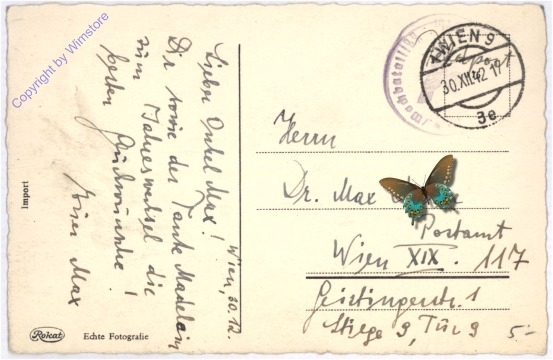 Copyright by Wimstore
Wien, 30.12.
Lieber Onkel Max!
Dir sowie der Tante Madelain
zum Jahreswechsel die
besten Glückwünsche!
Euer Max
Import
Rokat
Echte Fotografie
WIEN 9
30.XII.42 17
3e
Herrn
Dr. Max
Postamt
Wien XIX. 117
Geistingerstr. 1
Stiege 9, Tür 9
5.-